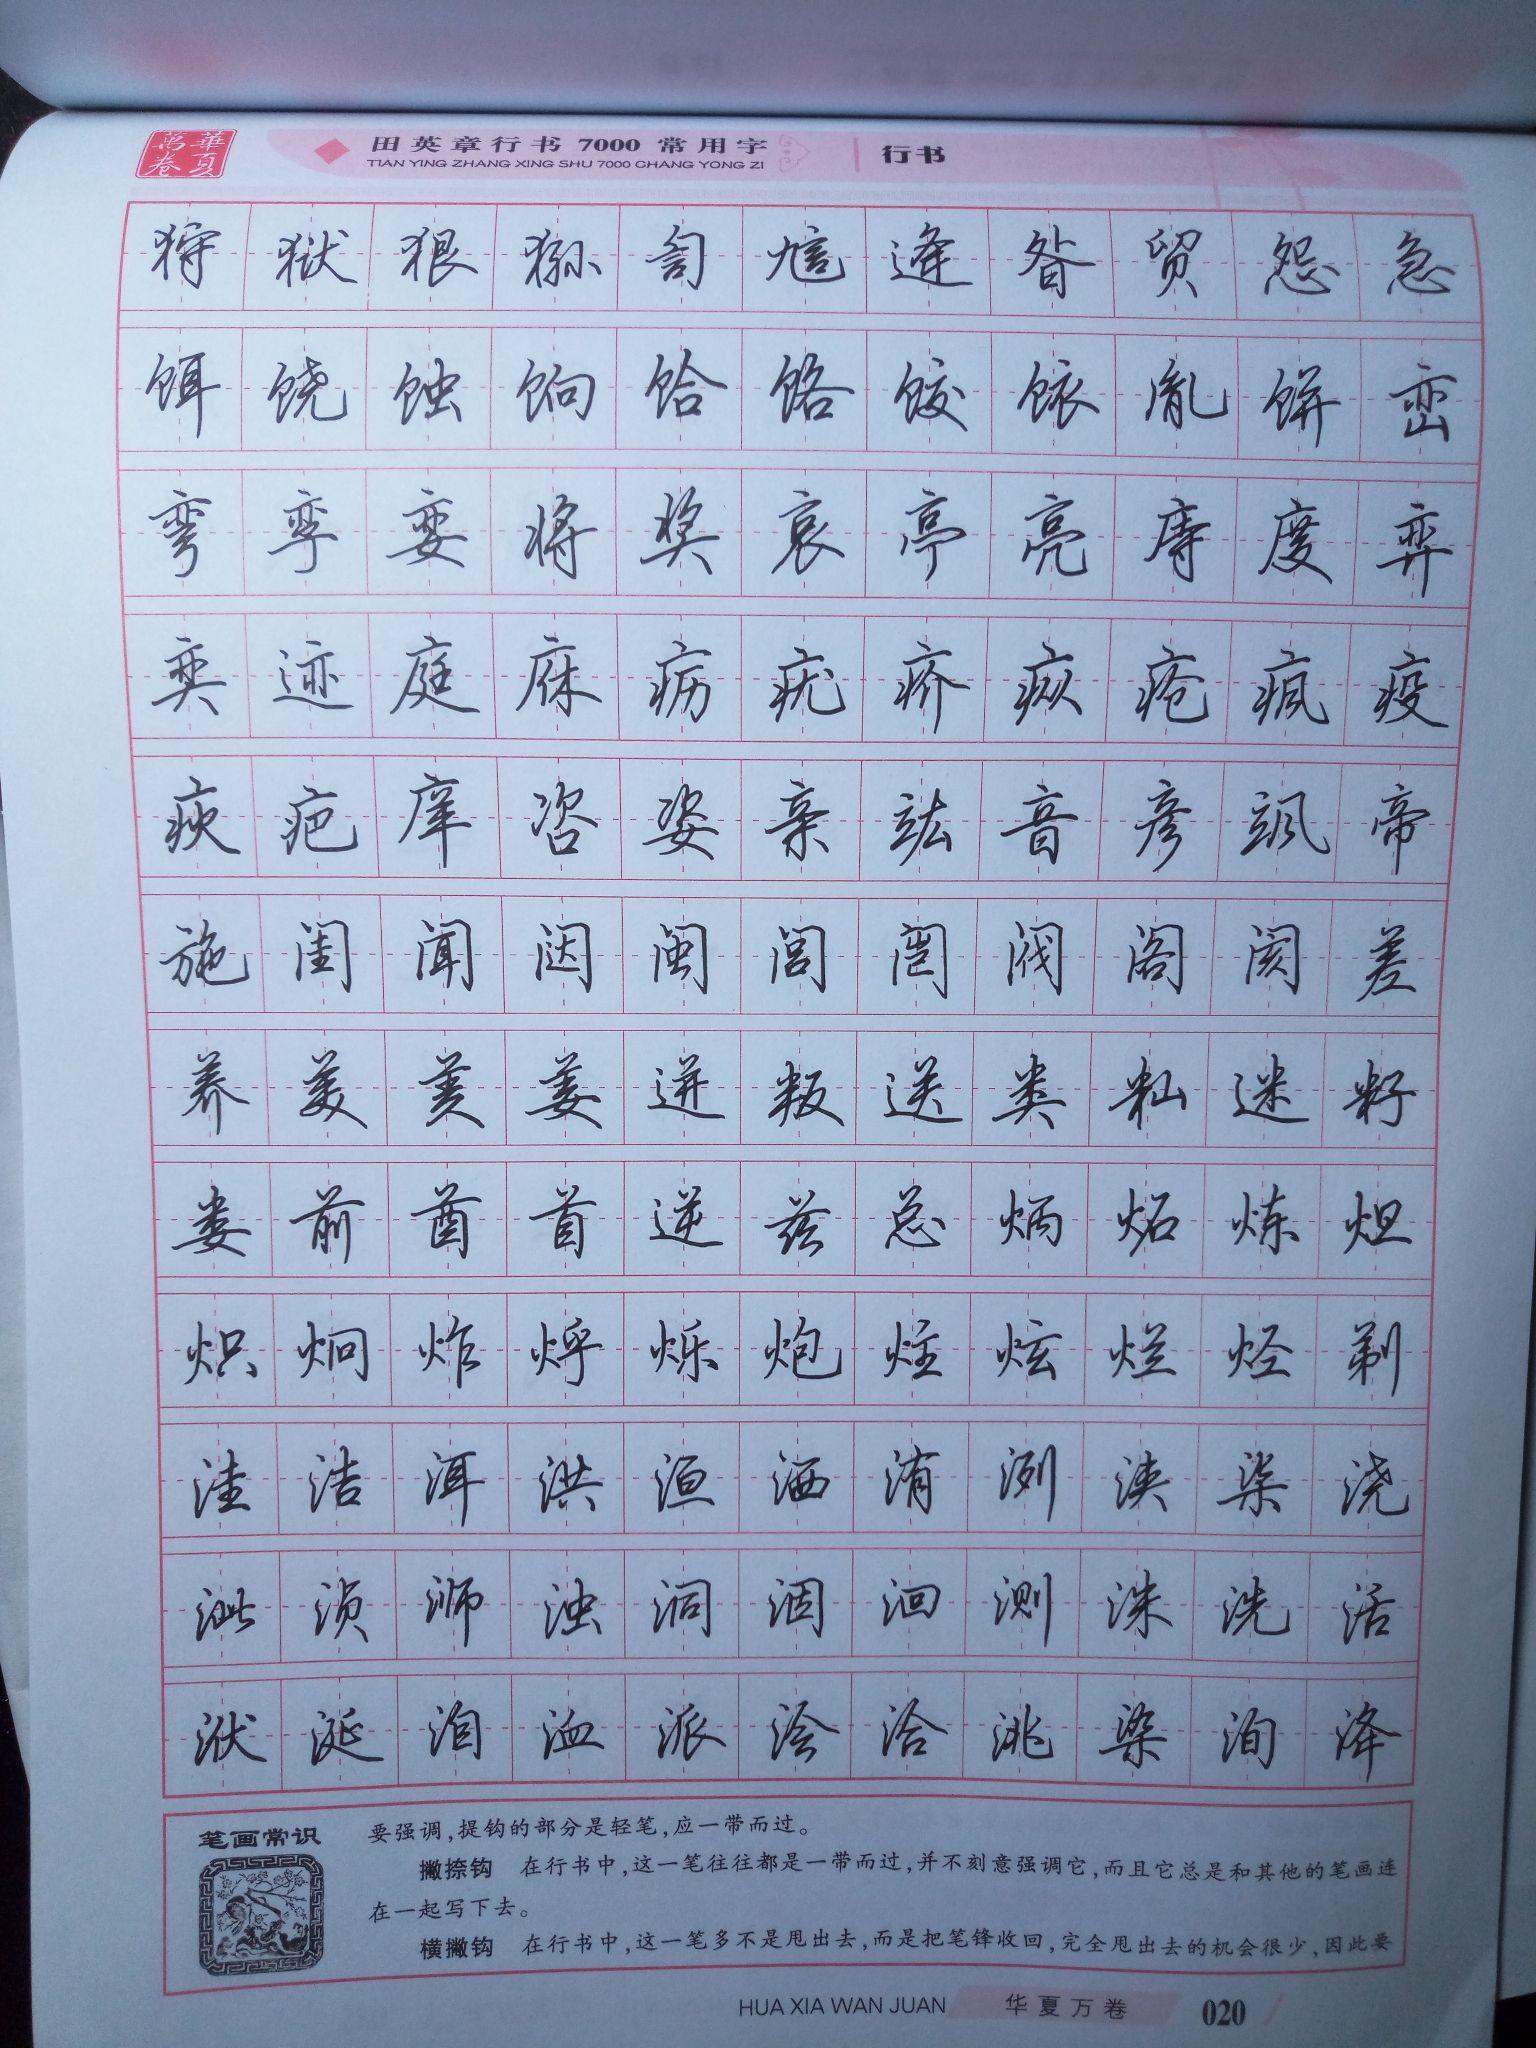 華夏萬卷
田英章行书 7000 常用字
行书
TIAN YING ZHANG XING SHU 7000 CHANG YONG ZI
狩 狱 狠 狲 訇 訄 逄 昝 贸 怨 急
饵 饶 蚀 饷 饸 饹 饺 饻 胤 饼 峦
弯 孪 娈 将 奖 哀 亭 亮 庤 度 弈
奕 迹 庭 庥 疬 疣 疥 疭 疮 疯 疫
疢 疤 庠 咨 姿 亲 竑 音 彦 飒 帝
施 闺 闻 闼 闽 闾 闿 阀 阁 阂 差
养 美 羑 姜 迸 叛 送 类 籼 迷 籽
娄 前 酋 首 逆 兹 总 炳 炻 炼 炟
炽 炯 炸 烀 烁 炮 炷 炫 烂 烃 剃
洼 洁 洱 洪 洹 洒 洧 洌 浃 柒 浇
泚 浈 浉 浊 洞 洇 洄 测 洙 洗 活
洑 涎 洎 洫 派 浍 洽 洮 染 洵 洚
笔画常识
要强调,提钩的部分是轻笔,应一带而过。
撇捺钩 在行书中,这一笔往往都是一带而过,并不刻意强调它,而且它总是和其他的笔画连
在一起写下去。
横撇钩 在行书中,这一笔多不是甩出去,而是把笔锋收回,完全甩出去的机会很少,因此要
HUA XIA WAN JUAN 华夏万卷 020